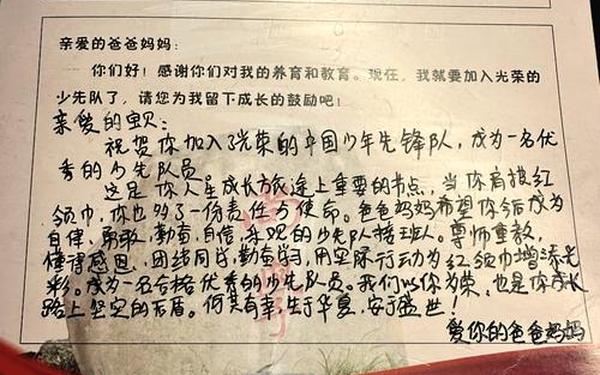 亲爱的爸爸妈妈：
你们好！感谢你们对我的养育和教育。现在，我就要加入光荣的
少先队了，请您为我留下成长的鼓励吧！
亲爱的宝贝：
祝贺你加入了光荣的中国少年先锋队，成为一名优
秀的少先队员。
这是你人生成长旅途上重要的节点，当你肩披红
领巾，你也多了一份责任与使命。爸爸妈妈希望你今后成为
自律，勇敢，勤奋，自信，乐观的少先队接班人。尊师重教，
懂得感恩，团结同学，勤奋学习，用实际行动为红领巾增添光
彩。成为一名合格优秀的少先队员。我们以你为荣，也是你成长
路上坚定的后盾。何其有幸，生于华夏，安于盛世！
爱你的爸爸妈妈